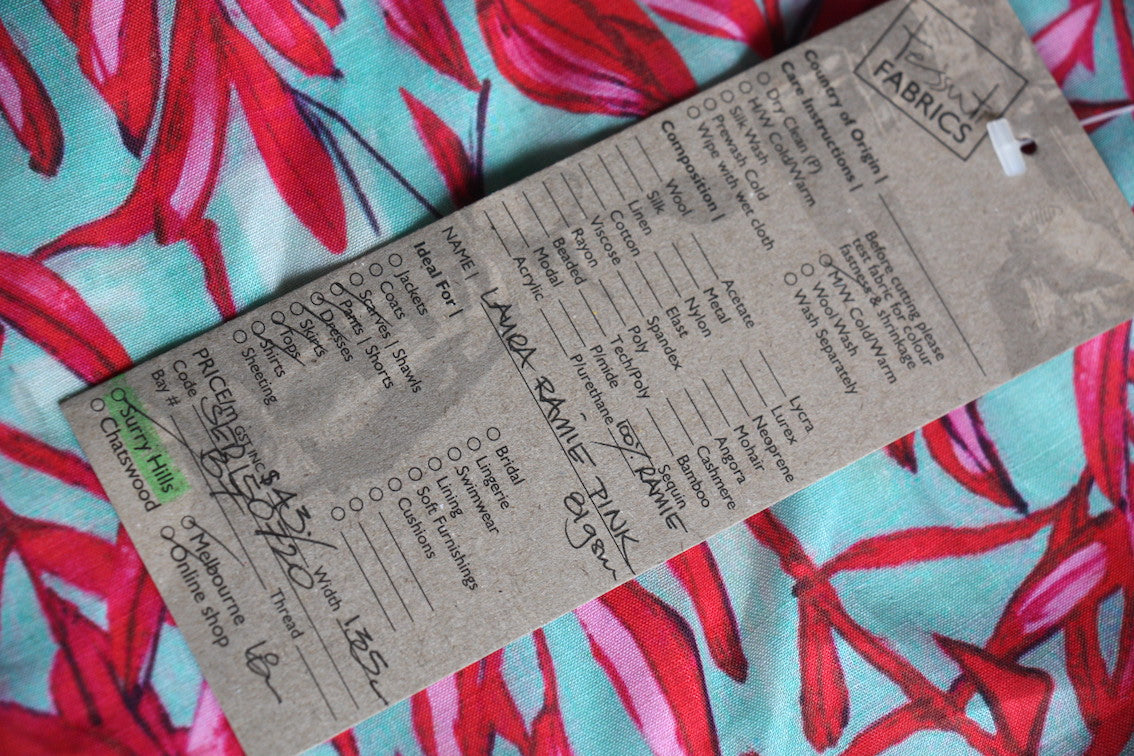 Tessuti
FABRICS
Country of Origin |
Care Instructions |
Dry Clean (P)
H/W Cold/Warm
Silk Wash
Prewash Cold
Wipe with wet cloth
Before cutting please
test fabric for colour
fastness & shrinkage
M/W Cold/Warm
Wool Wash
Wash Separately
Composition |
Wool
Silk
Linen
Cotton
Viscose
Rayon
Beaded
Modal
Acrylic
Acetate
Metal
Nylon
Elast
Spandex
Poly
Tech/Poly
P/mide
P/urethane
Lycra
Lurex
Neoprene
Mohair
Angora
Cashmere
Bamboo
Sequin
100% RAMIE
NAME | LAURA RAMIE PINK
Ideal For |
Jackets
Coats
Scarves | Shawls
Pants | Shorts
Dresses
Skirts
Tops
Shirts
Sheeting
Bridal
Lingerie
Swimwear
Lining
Soft Furnishings
Cushions
PRICE/m GST INC $ 43./ Width 135
Code
Bay #
Thread
Surry Hills
Chatswood
Melbourne
Online shop